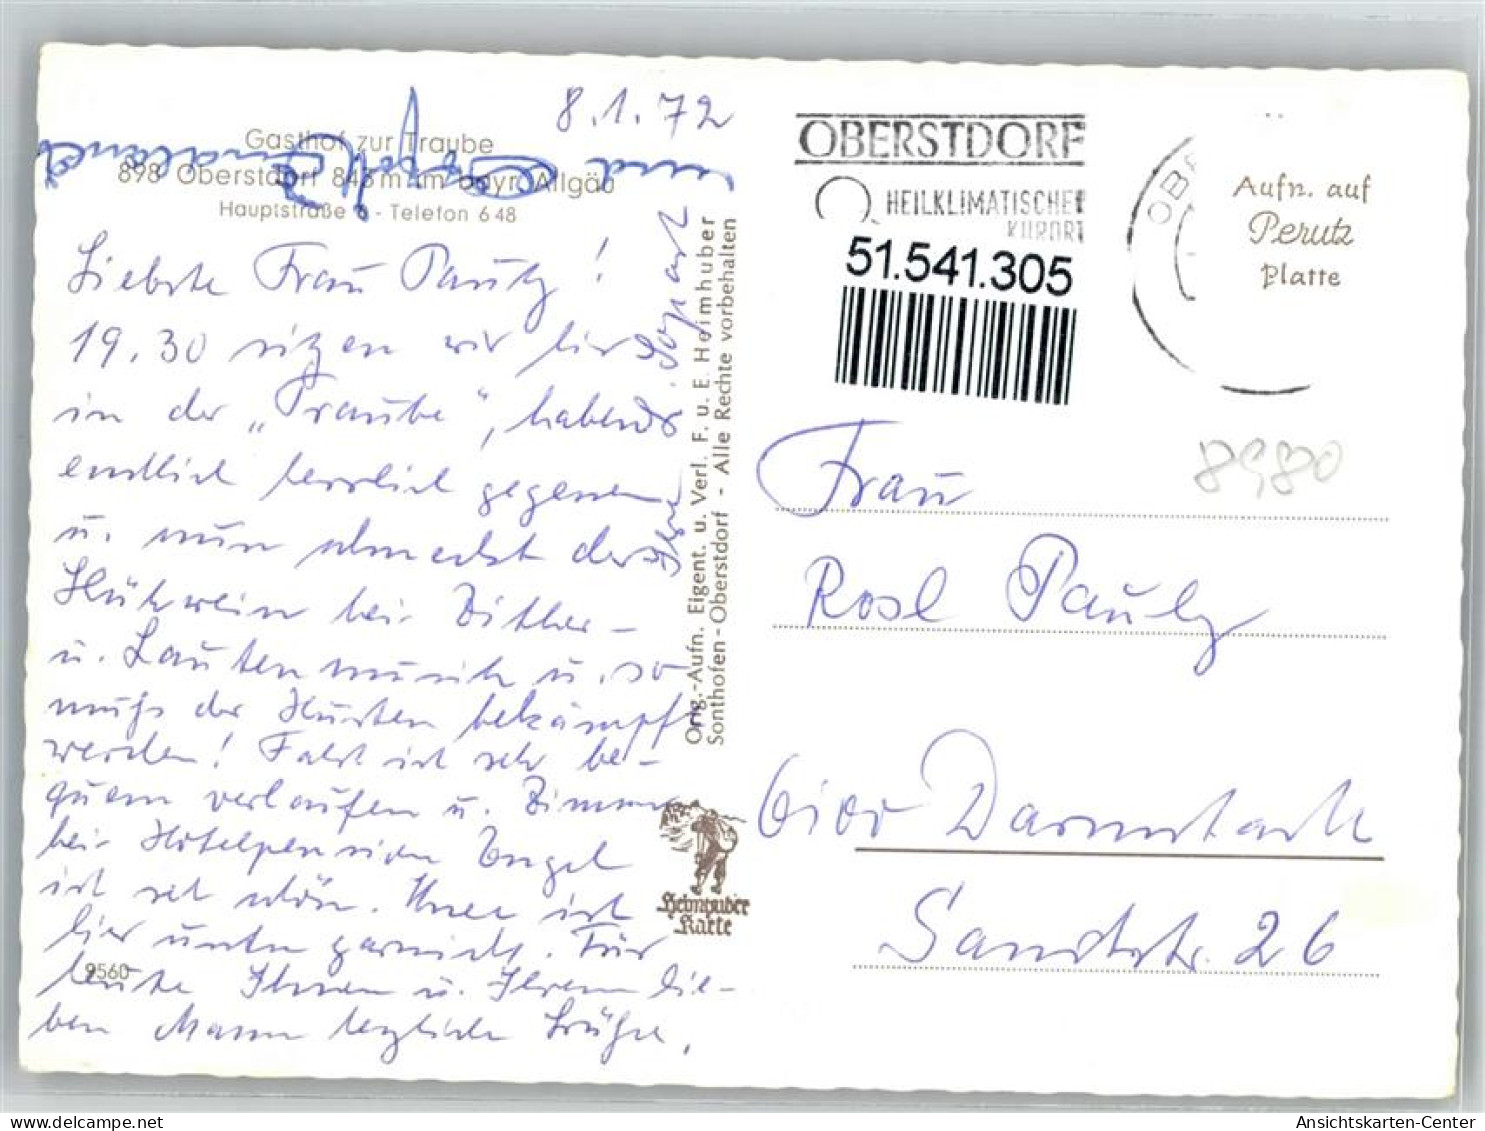 8.1.72
Gasthof zur Traube
898 Oberstdorf 843 m im bayr. Allgäu
Hauptstraße 6 - Telefon 6 48
und
Liebste Frau Pautz!
19.30 sitzen wir hier
in der „Traube“, haben
endlich herrlich gegessen
u. nun schmeckt der
Glühwein bei Zither-
u. Lautenmusik u. so
muß der Husten bekämpft
werden! Fahrt ist sehr be-
quem verlaufen u. Zimmer
bei Hotelpension Engel
ist sehr schön. Schnee ist
hier unten garnicht. Für
heute Ihnen u. Ihrem lie-
ben Mann herzliche Grüße,
Ihre
9560
Orig.-Aufn. Eigent. u. Verl. F. u. E. Heimhuber
Sonthofen-Oberstdorf - Alle Rechte vorbehalten
Heimhuber
Karte
OBERSTDORF
HEILKLIMATISCHER
KURORT
51.541.305
Aufn. auf
Perutz
Platte
8980
Frau
Rosl Pautz
6100 Darmstadt
Sandstr. 26
Ansichtskarten-Center